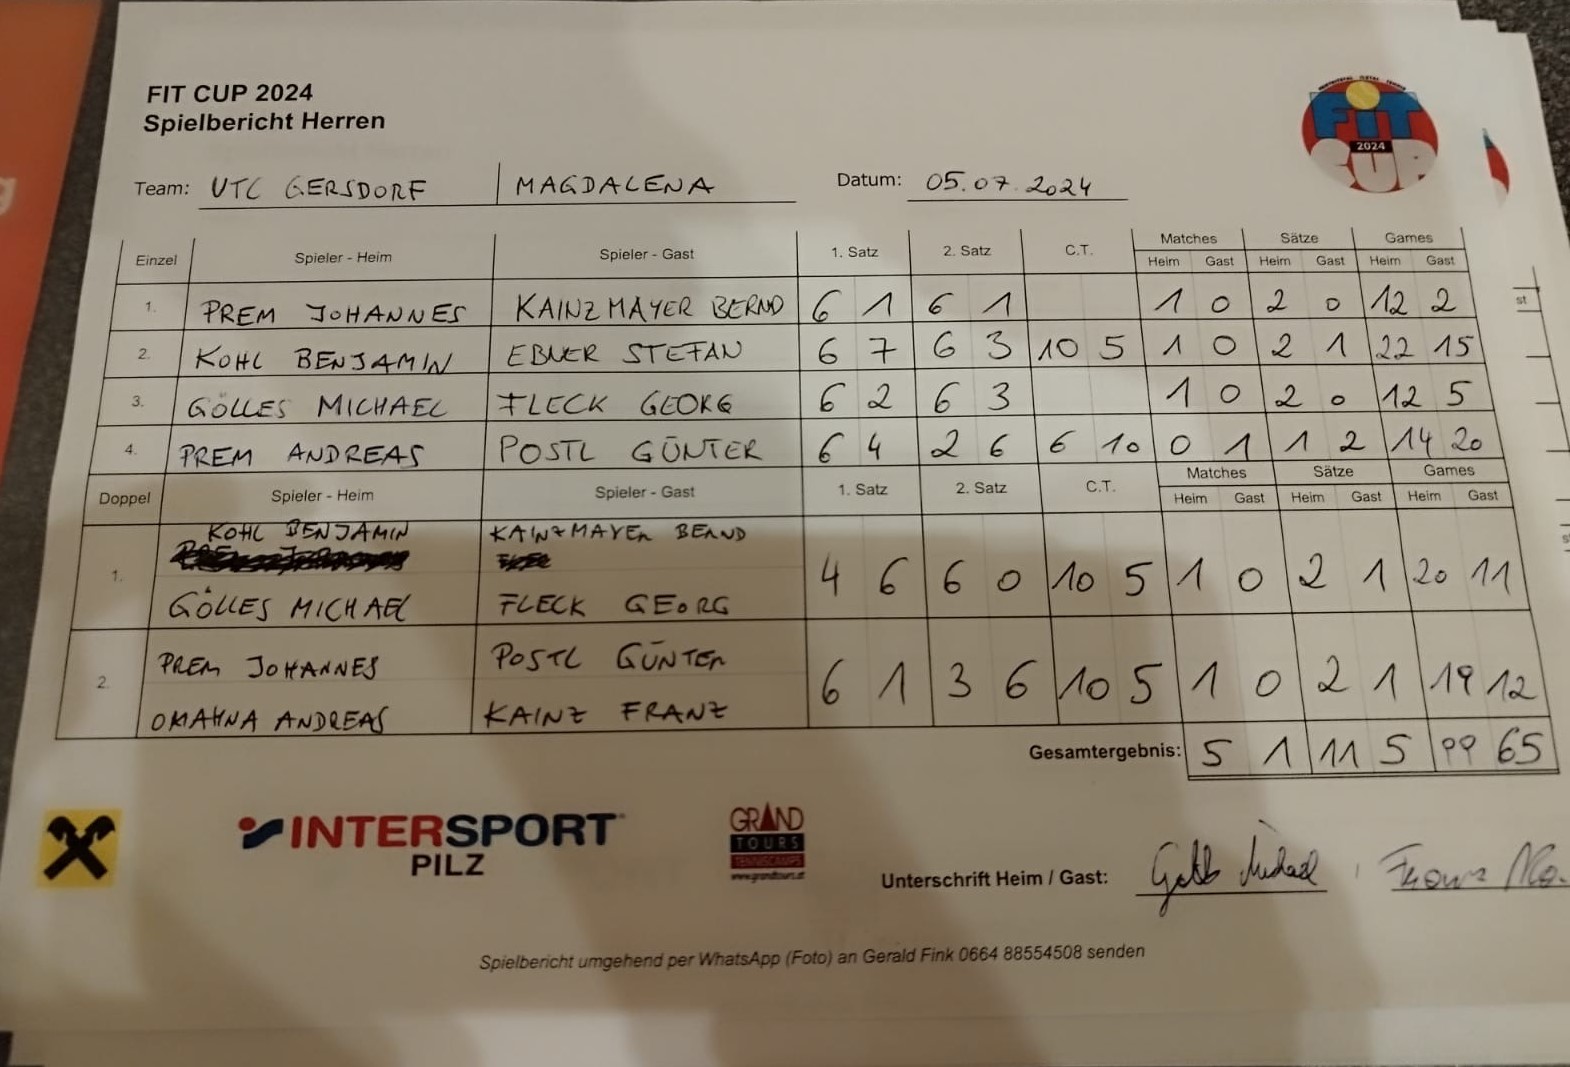 FIT CUP 2024
Spielbericht Herren
FIT
2024
CUP
Team: UTC GERSDORF MAGDALENA Datum: 05.07.2024
Einzel Spieler - Heim Spieler - Gast 1. Satz 2. Satz C.T. Matches Sätze Games
Heim Gast Heim Gast Heim Gast
1. PREM JOHANNES KAINZMAYER BERND 6 1 6 1 1 0 2 0 12 2
2. KOHL BENJAMIN EBNER STEFAN 6 7 6 3 10 5 1 0 2 1 22 15
3. GÖLLES MICHAEL FLECK GEORG 6 2 6 3 1 0 2 0 12 5
4. PREM ANDREAS POSTL GÜNTER 6 4 2 6 6 10 0 1 1 2 14 20
Doppel Spieler - Heim Spieler - Gast 1. Satz 2. Satz C.T. Matches Sätze Games
Heim Gast Heim Gast Heim Gast
KOHL BENJAMIN KAINZMAYER BERND
1. 4 6 6 0 10 5 1 0 2 1 20 11
GÖLLES MICHAEL FLECK GEORG
PREM JOHANNES POSTL GÜNTER
2. 6 1 3 6 10 5 1 0 2 1 19 12
OMAHNA ANDREAS KAINZ FRANZ
Gesamtergebnis: 5 1 11 5 99 65
INTERSPORT
PILZ
GRAND
TOURS
TENNISCAMPS
www.grandtours.at
Unterschrift Heim / Gast:
Spielbericht umgehend per WhatsApp (Foto) an Gerald Fink 0664 88554508 senden